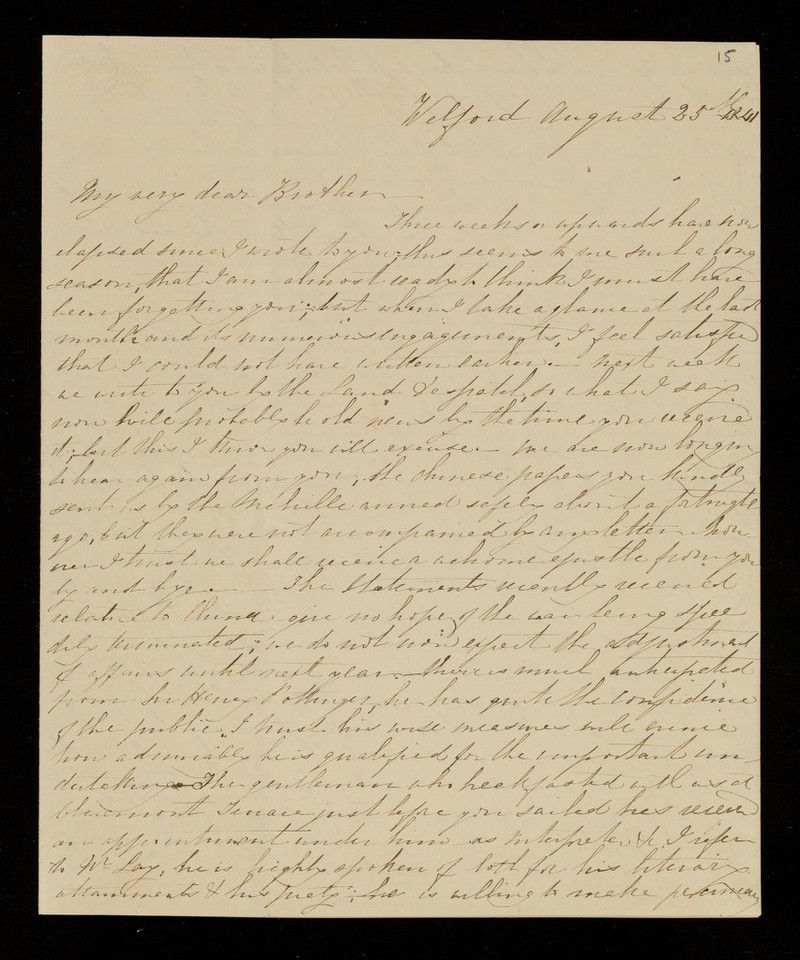 15
Welford August 25th 1841
My very dear Brother
Three weeks or upwards have now
elapsed since I wrote to you; this seems to me such a long
season, that I am almost ready to think I must have
been forgetting you; but when I take a glance at the last
month and its numerous engagements, I feel satisfied
that I could not have written earlier. — Next week
we write to you by the Land Despatch, so what I say
now will probably be old news by the time you receive
it; but this I know you will excuse. — We are now longing
to hear again from you; the chinese papers you kindly
sent us by the Melville arrived safely about a fortnight
ago, but they were not accompanied by any letter, how
ever I trust we shall receive a welcome epistle from you
by and bye. — The Statements recently received
relative to China give no hope of the war being spee
dily terminated; we do not now expect the adjustment
of affairs until next year. — there is much anticipated
from Sir Henry Pottinger, he has quite the confidence
of the public. I trust his wise measures will evince
how admirably he is qualified for the important un
dertaking. The gentleman who breakfasted with us at
Claremont Terrace just before you sailed has received
an appointment under him as Interpreter &c, I refer
to Mr Lay, he is highly spoken of both for his literary
attainments & his piety; he is willing to make pecuniary